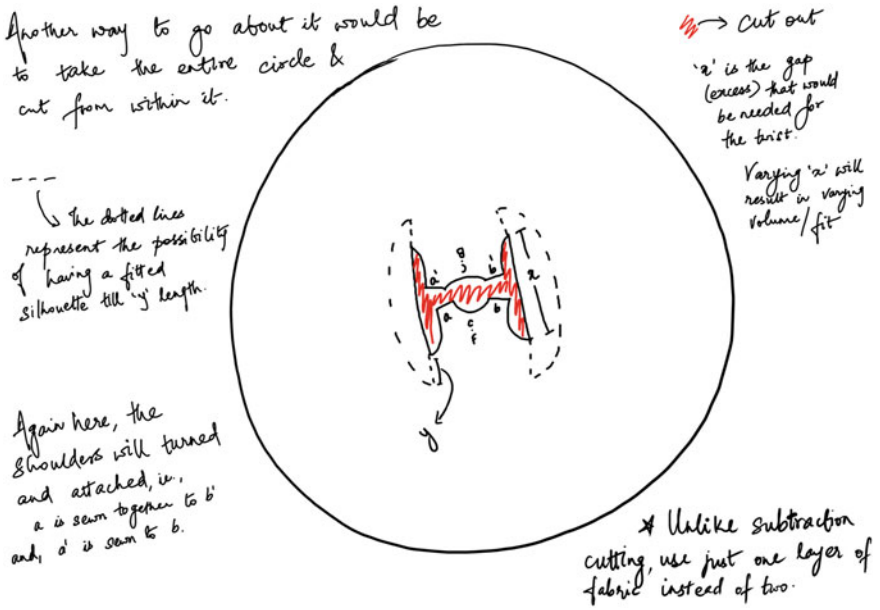 Another way to go about it would be
to take the entire circle &
cut from within it.
cut out
'x' is the gap
(excess) that would
be needed for
the twist.
Varying 'x' will
result in varying
volume/fit
The dotted lines
represent the possibility
of having a fitted
silhouette till 'y' length.
B
a'
b'
x
a
b
c
F
y
Again here, the
shoulders will turned
and attached, i.e.,
a is sewn together to b'
and, a' is sewn to b.
* Unlike subtraction
cutting, use just one layer of
fabric instead of two.